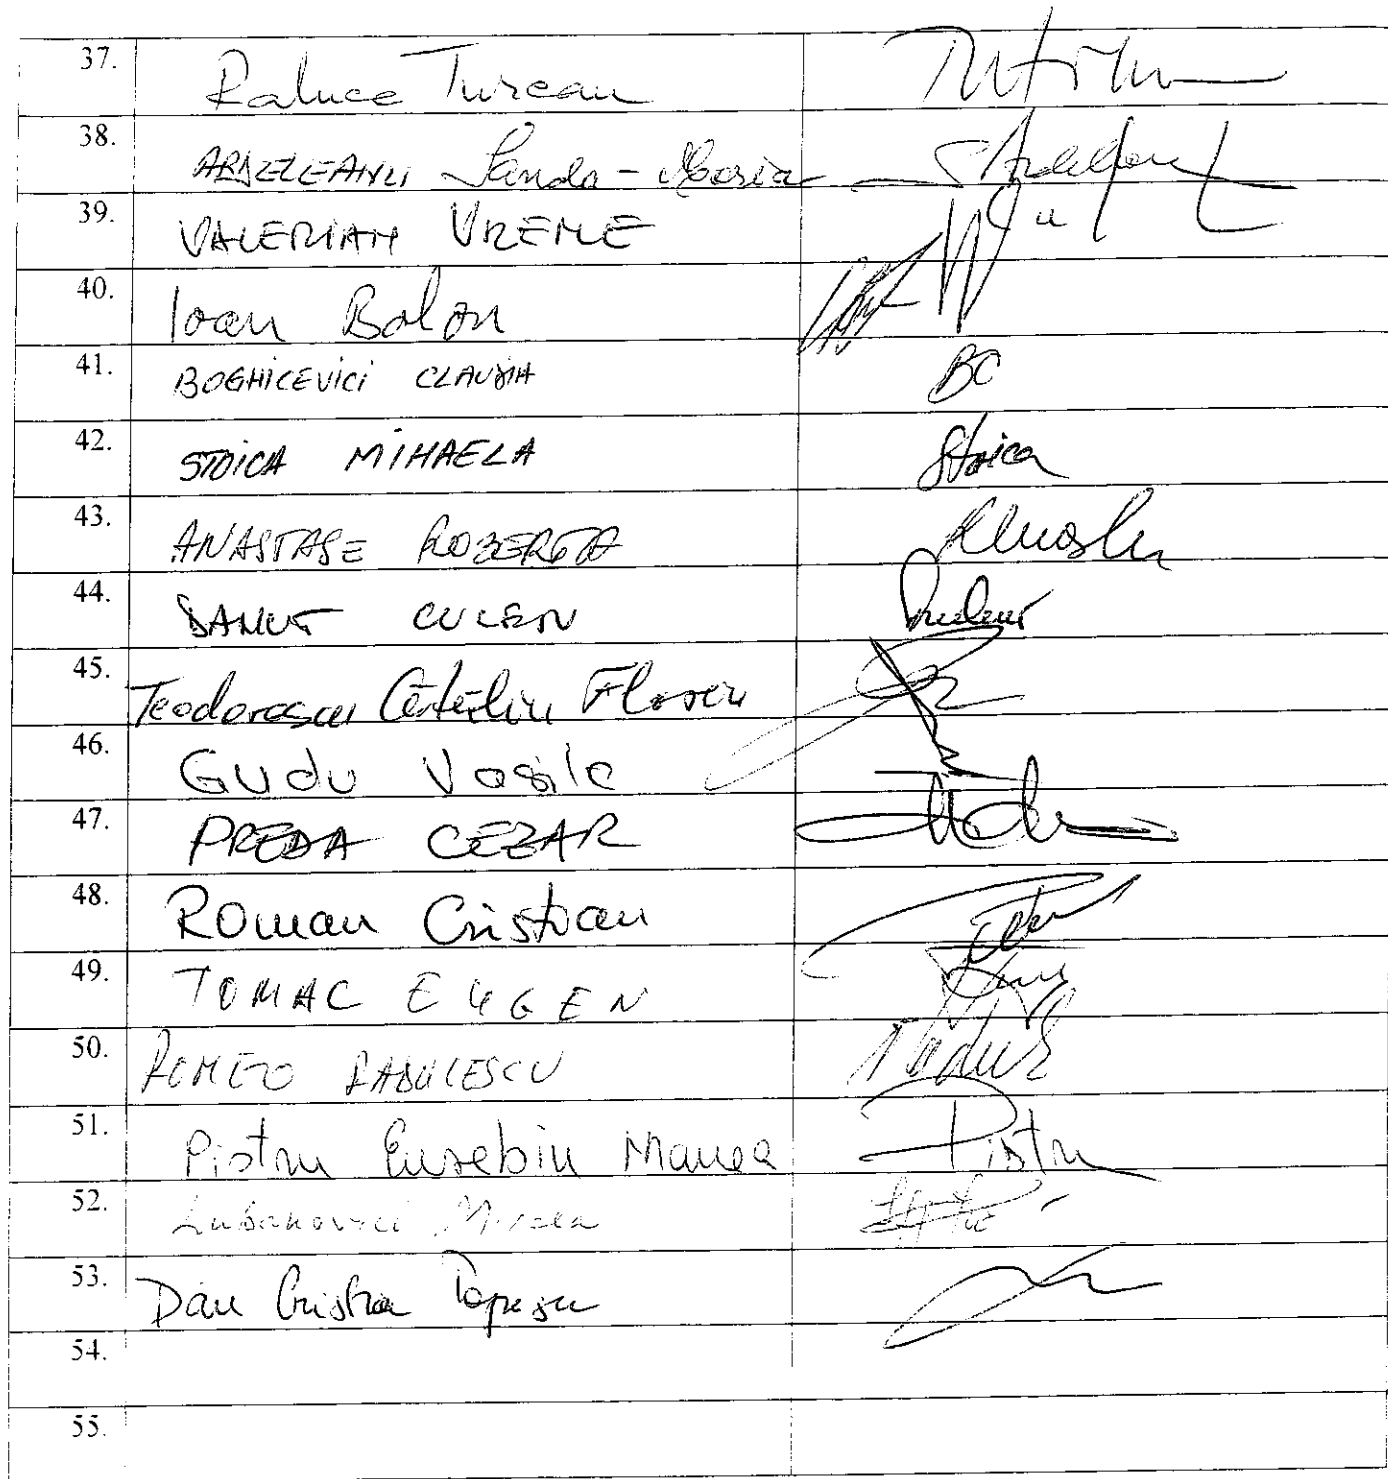 37. Raluca Turcan
38. ARDELEANU Sanda-Maria
39. VALERIAN VREME
40. Ioan Balan
41. BOGHICEVICI CLAUDIA BC
42. STOICA MIHAELA Stoica
43. ANASTASE ROBERTA
44. DANUT CULETU
45. Teodorescu Cătălin Florin
46. Gudu Vasile
47. PREDA CEZAR
48. Roman Cristian
49. TOMAC EUGEN
50. ROMEO RADULESCU
51. Pistru Eusebiu Manea Pistru
52. Lubanovici Mircea
53. Dan Cristian Popescu
54.
55.